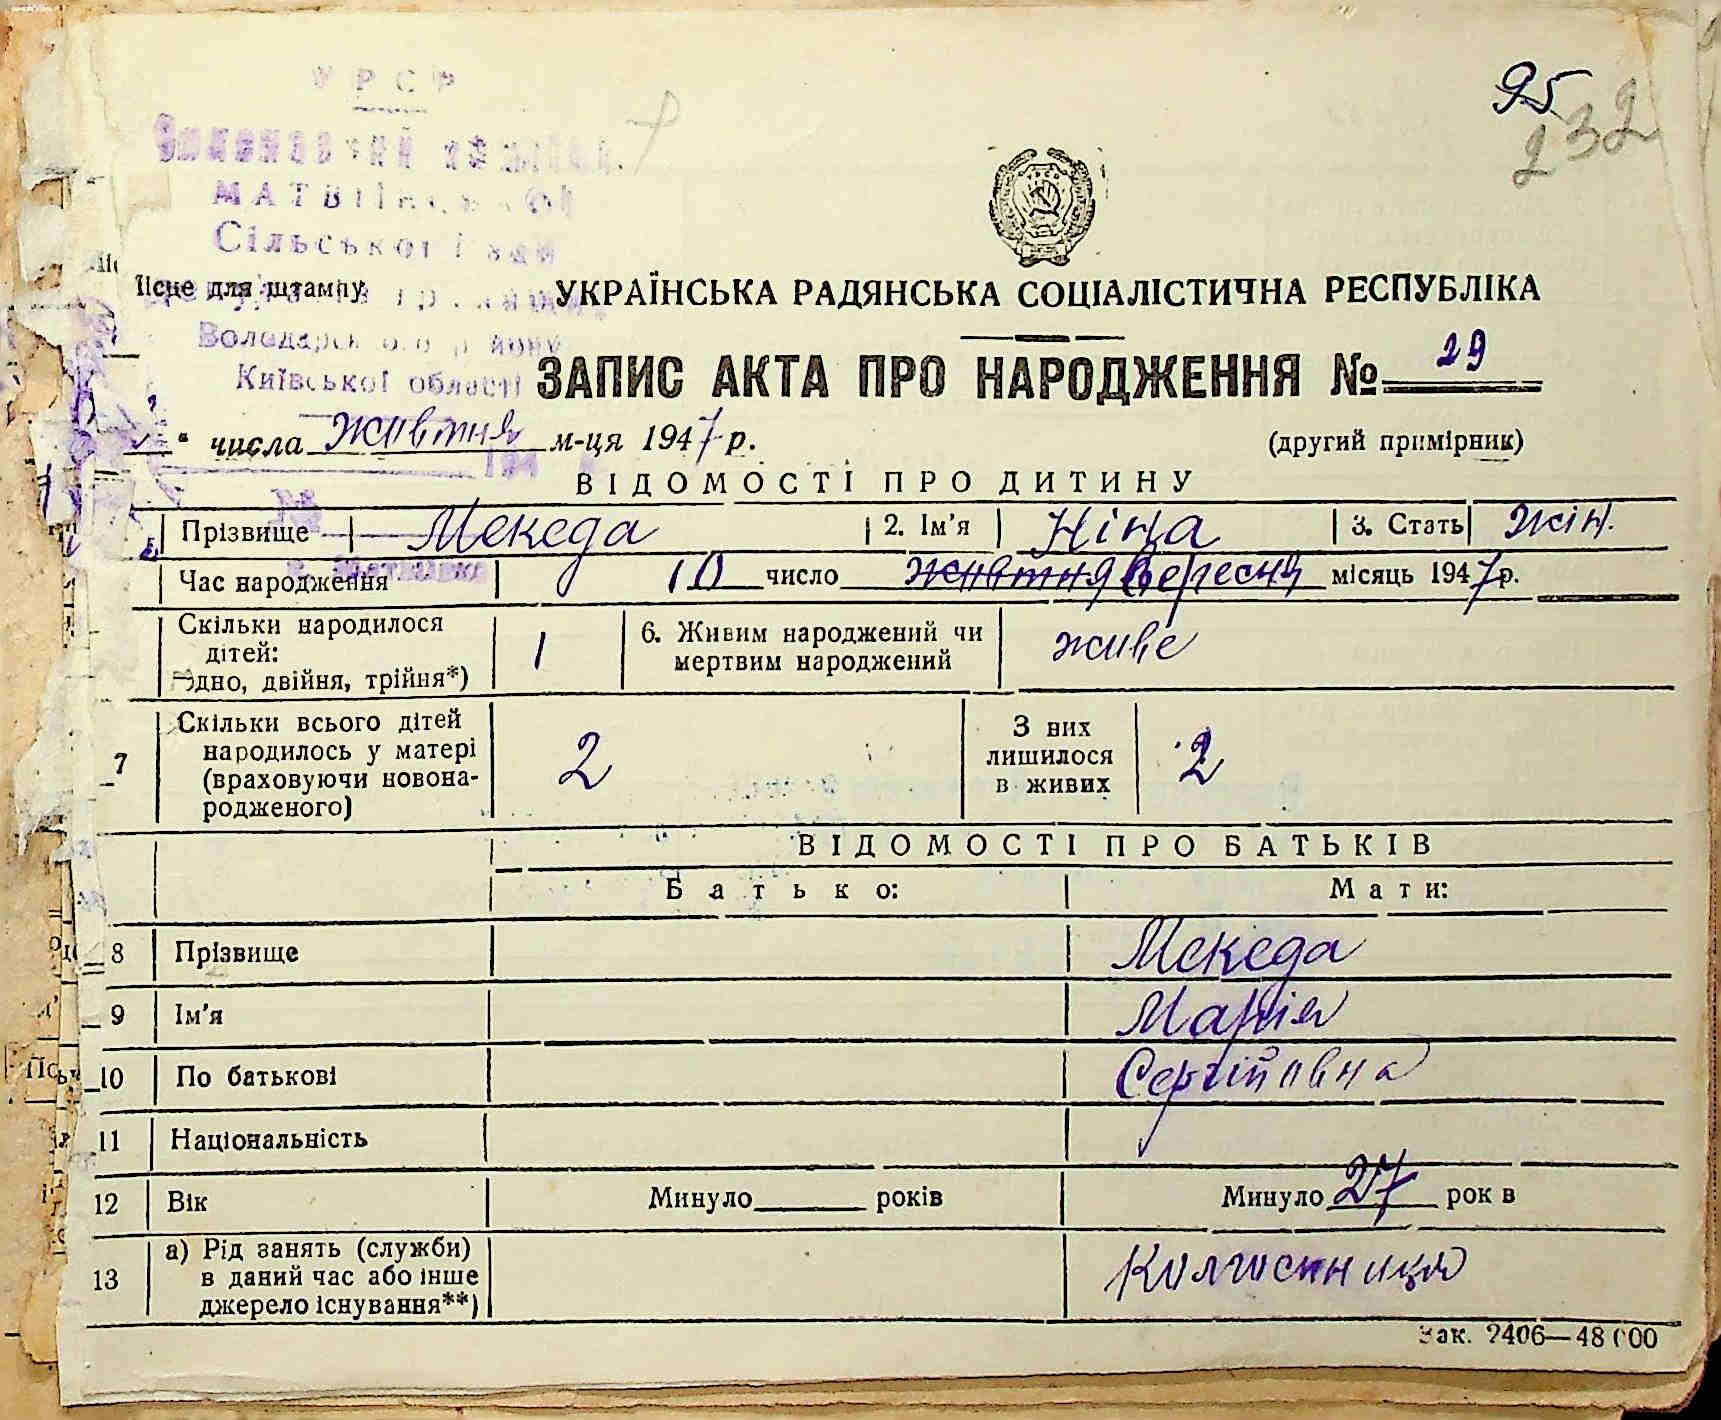 95
232
УРСР
Виконавчий комітет
МАТВІЇНСЬКОЇ
Сільської Ради
Місце для штампу
УКРАЇНСЬКА РАДЯНСЬКА СОЦІАЛІСТИЧНА РЕСПУБЛІКА
Володарського району
Київської області
ЗАПИС АКТА ПРО НАРОДЖЕННЯ № 29
" числа жовтня м-ця 1947 р.
(другий примірник)
194
ВІДОМОСТІ ПРО ДИТИНУ
Прізвище Мекеда 2. Ім'я Ніна 3. Стать жін.
Час народження 10 число жовтня Вересня місяць 1947 р.
Скільки народилося дітей: Одно, двійня, трійня*) 1 6. Живим народжений чи мертвим народжений живе
7 Скільки всього дітей народилось у матері (враховуючи новонародженого) 2 З них лишилося в живих 2
ВІДОМОСТІ ПРО БАТЬКІВ
Батько: Мати:
8 Прізвище Мекеда
9 Ім'я Марія
10 По батькові Сергіївна
11 Національність
12 Вік Минуло років Минуло 27 років
13 а) Рід занять (служби) в даний час або інше джерело існування**) Колгоспниця
Зак. 2406—48 000